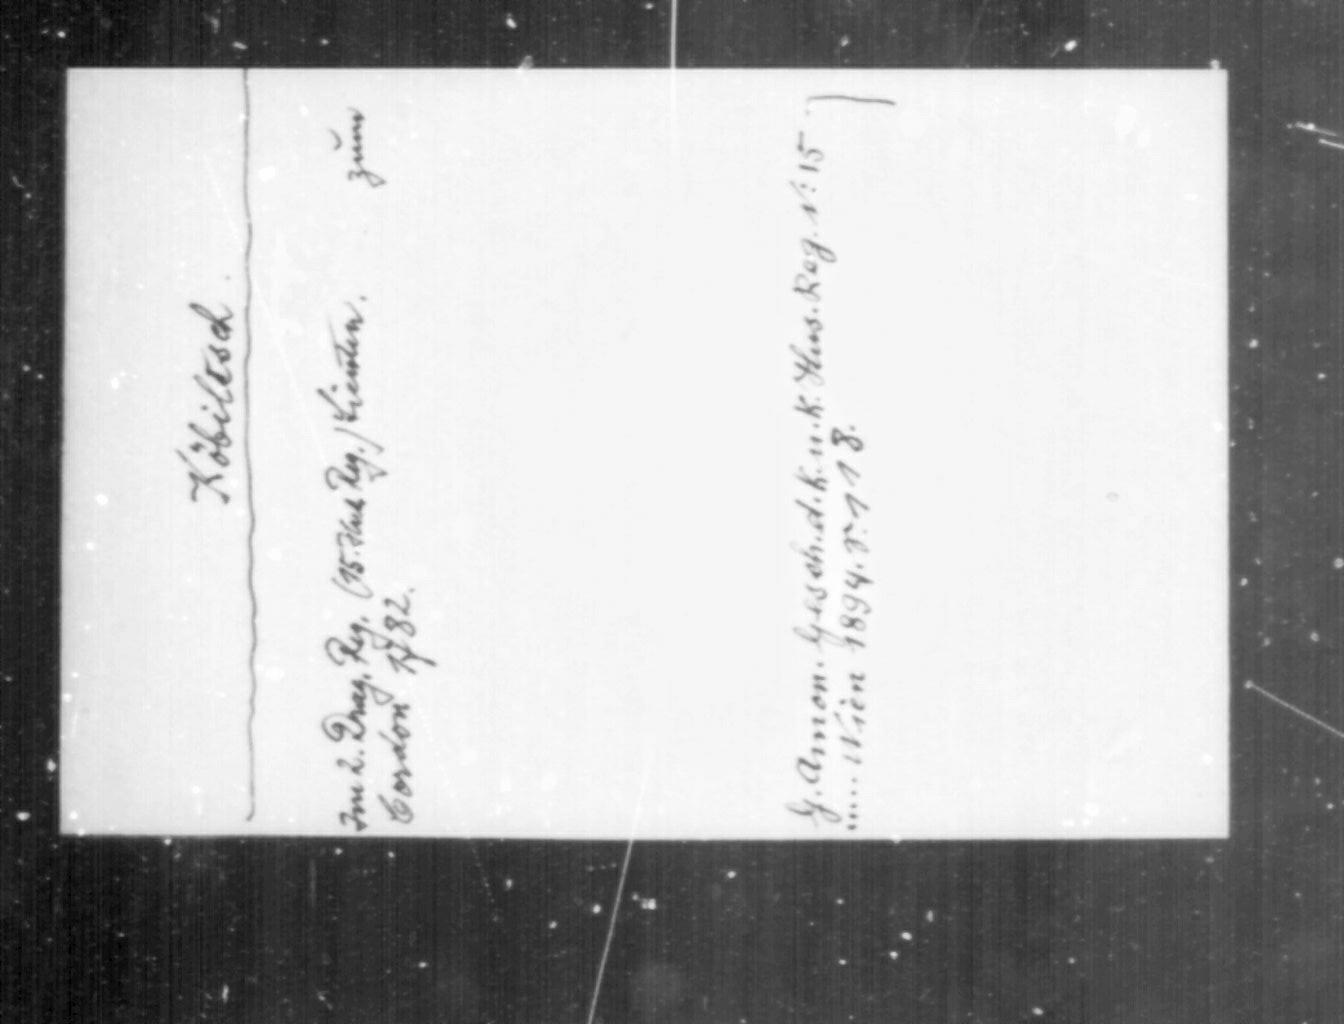 Köbiltsch.
Im 2. Drag. Reg. (15. Hus. Reg.) Lieuten. zum
Cordon 1782.
G. Amon. Gesch. d. k. u. k. Hus. Reg. Nr: 15
..... Wien 1894. S. 118.